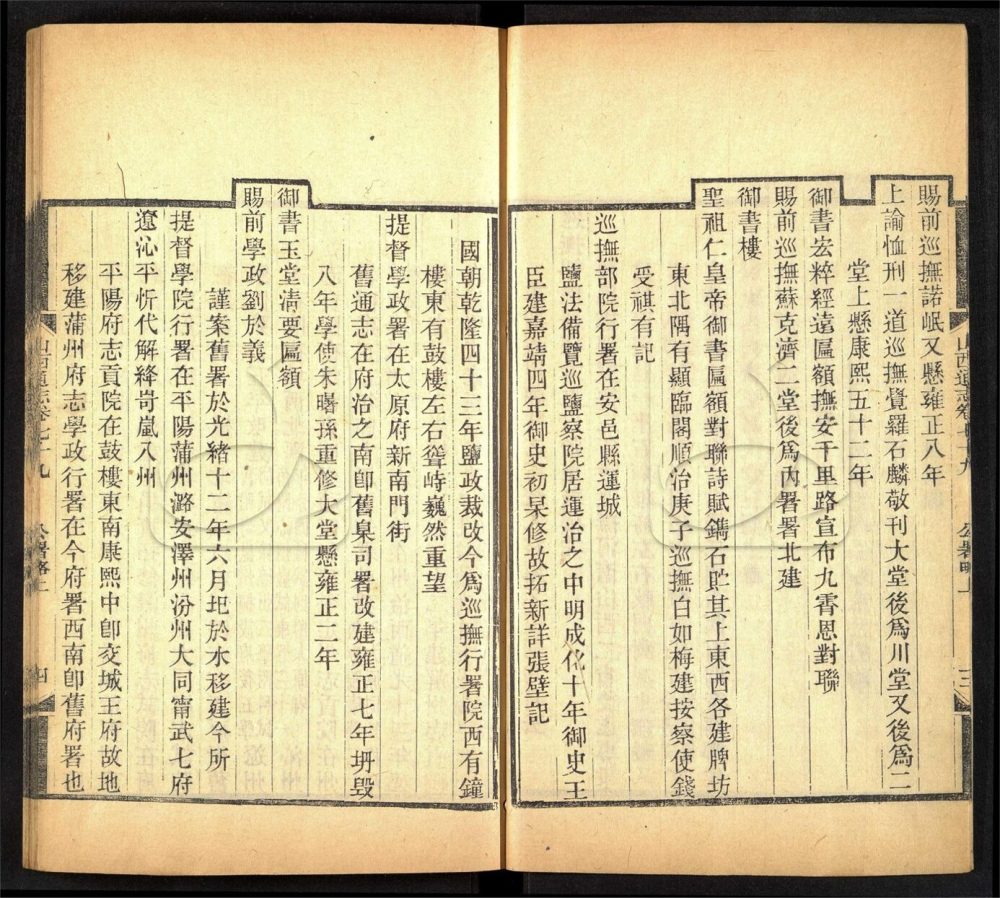 賜前巡撫諾岷又懸雍正八年
上諭恤刑一道巡撫覺羅石麟敬刊大堂後爲川堂又後爲二
堂上懸康熙五十二年
御書宏粹經遠匾額撫安千里路宣布九霄恩對聯
賜前巡撫蘇克濟二堂後爲內署署北建
御書樓
聖祖仁皇帝御書匾額對聯詩賦鐫石貯其上東西各建牌坊
東北隅有顯臨閣順治庚子巡撫白如梅建按察使錢
受祺有記
巡撫部院行署在安邑縣運城
鹽法備覽巡鹽察院居運治之中明成化十年御史王
臣建嘉靖四年御史初杲修故拓新詳張壁記
山西通志卷七十九
公署略上
三
國朝乾隆四十三年鹽政裁改今爲巡撫行署院西有鐘
樓東有鼓樓左右聳峙巍然重望
提督學政署在太原府新南門街
舊通志在府治之南卽舊臬司署改建雍正七年坍毀
八年學使朱曙孫重修大堂懸雍正二年
御書玉堂淸要匾額
賜前學政劉於義
謹案舊署於光緒十二年六月圯於水移建今所
提督學院行署在平陽蒲州潞安澤州汾州大同甯武七府
遼沁平忻代解絳岢嵐八州
平陽府志貢院在鼓樓東南康熙中卽交城王府故地
移建蒲州府志學政行署在今府署西南卽舊府署也
山西通志卷七十九
公署略上
四